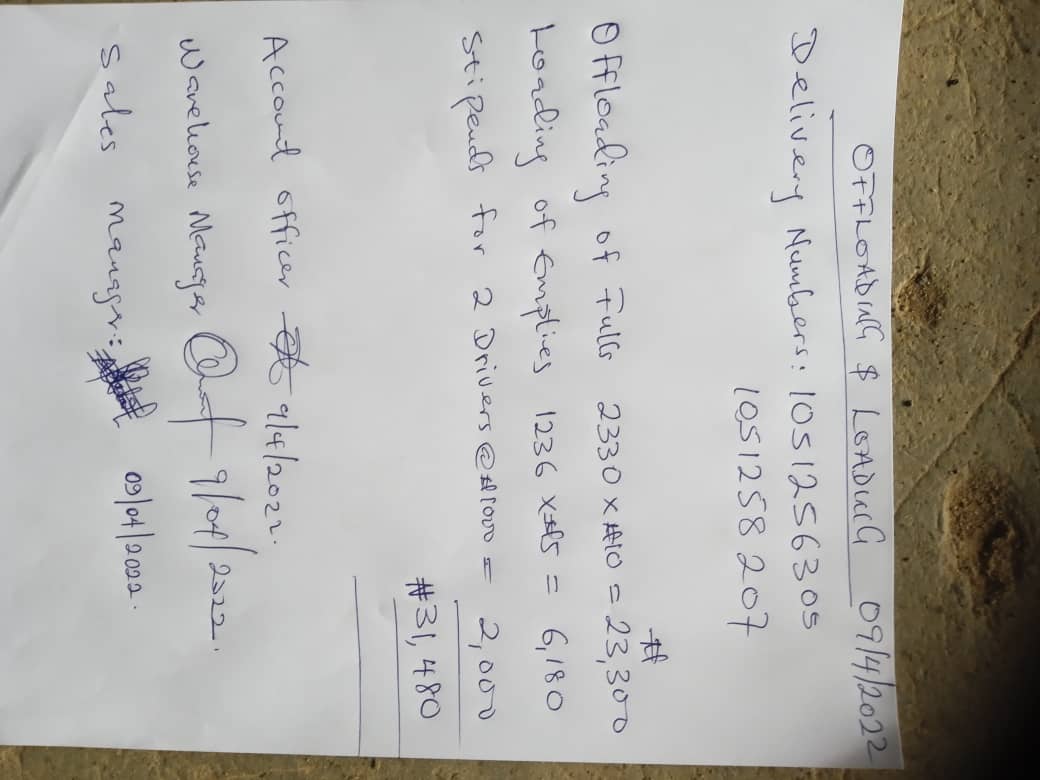 OFFLOADING $ LOADING 09/4/2022
Delivery Numbers: 1051256305
1051258207
#
Offloading of Fulls 2330 x #10 = 23,300
Loading of Empties 1236 x #5 = 6,180
Stipends for 2 Drivers @ #1000 = 2,000
#31,480
Account officer 9/4/2022.
Warehouse Manager 9/04/2022.
Sales manager: 09/04/2022.